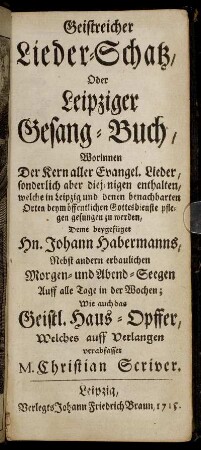 Geistreicher
Lieder-Schatz,
Oder
Leipziger
Gesang-Buch,
Worinnen
Der Kern aller Evangel. Lieder,
sonderlich aber diejenigen enthalten,
welche in Leipzig und denen benachbarten
Orten beym öffentlichen Gottesdienste pfle-
gen gesungen zu werden,
Deme beygefüget
Hn. Johann Habermanns,
Nebst andern erbaulichen
Morgen- und Abend-Seegen
Auff alle Tage in der Wochen;
Wie auch das
Geistl. Haus-Opffer,
Welches auff Verlangen
verabfasset
M. Christian Scriver.
Leipzig,
Verlegts Johann Friedrich Braun, 1715.